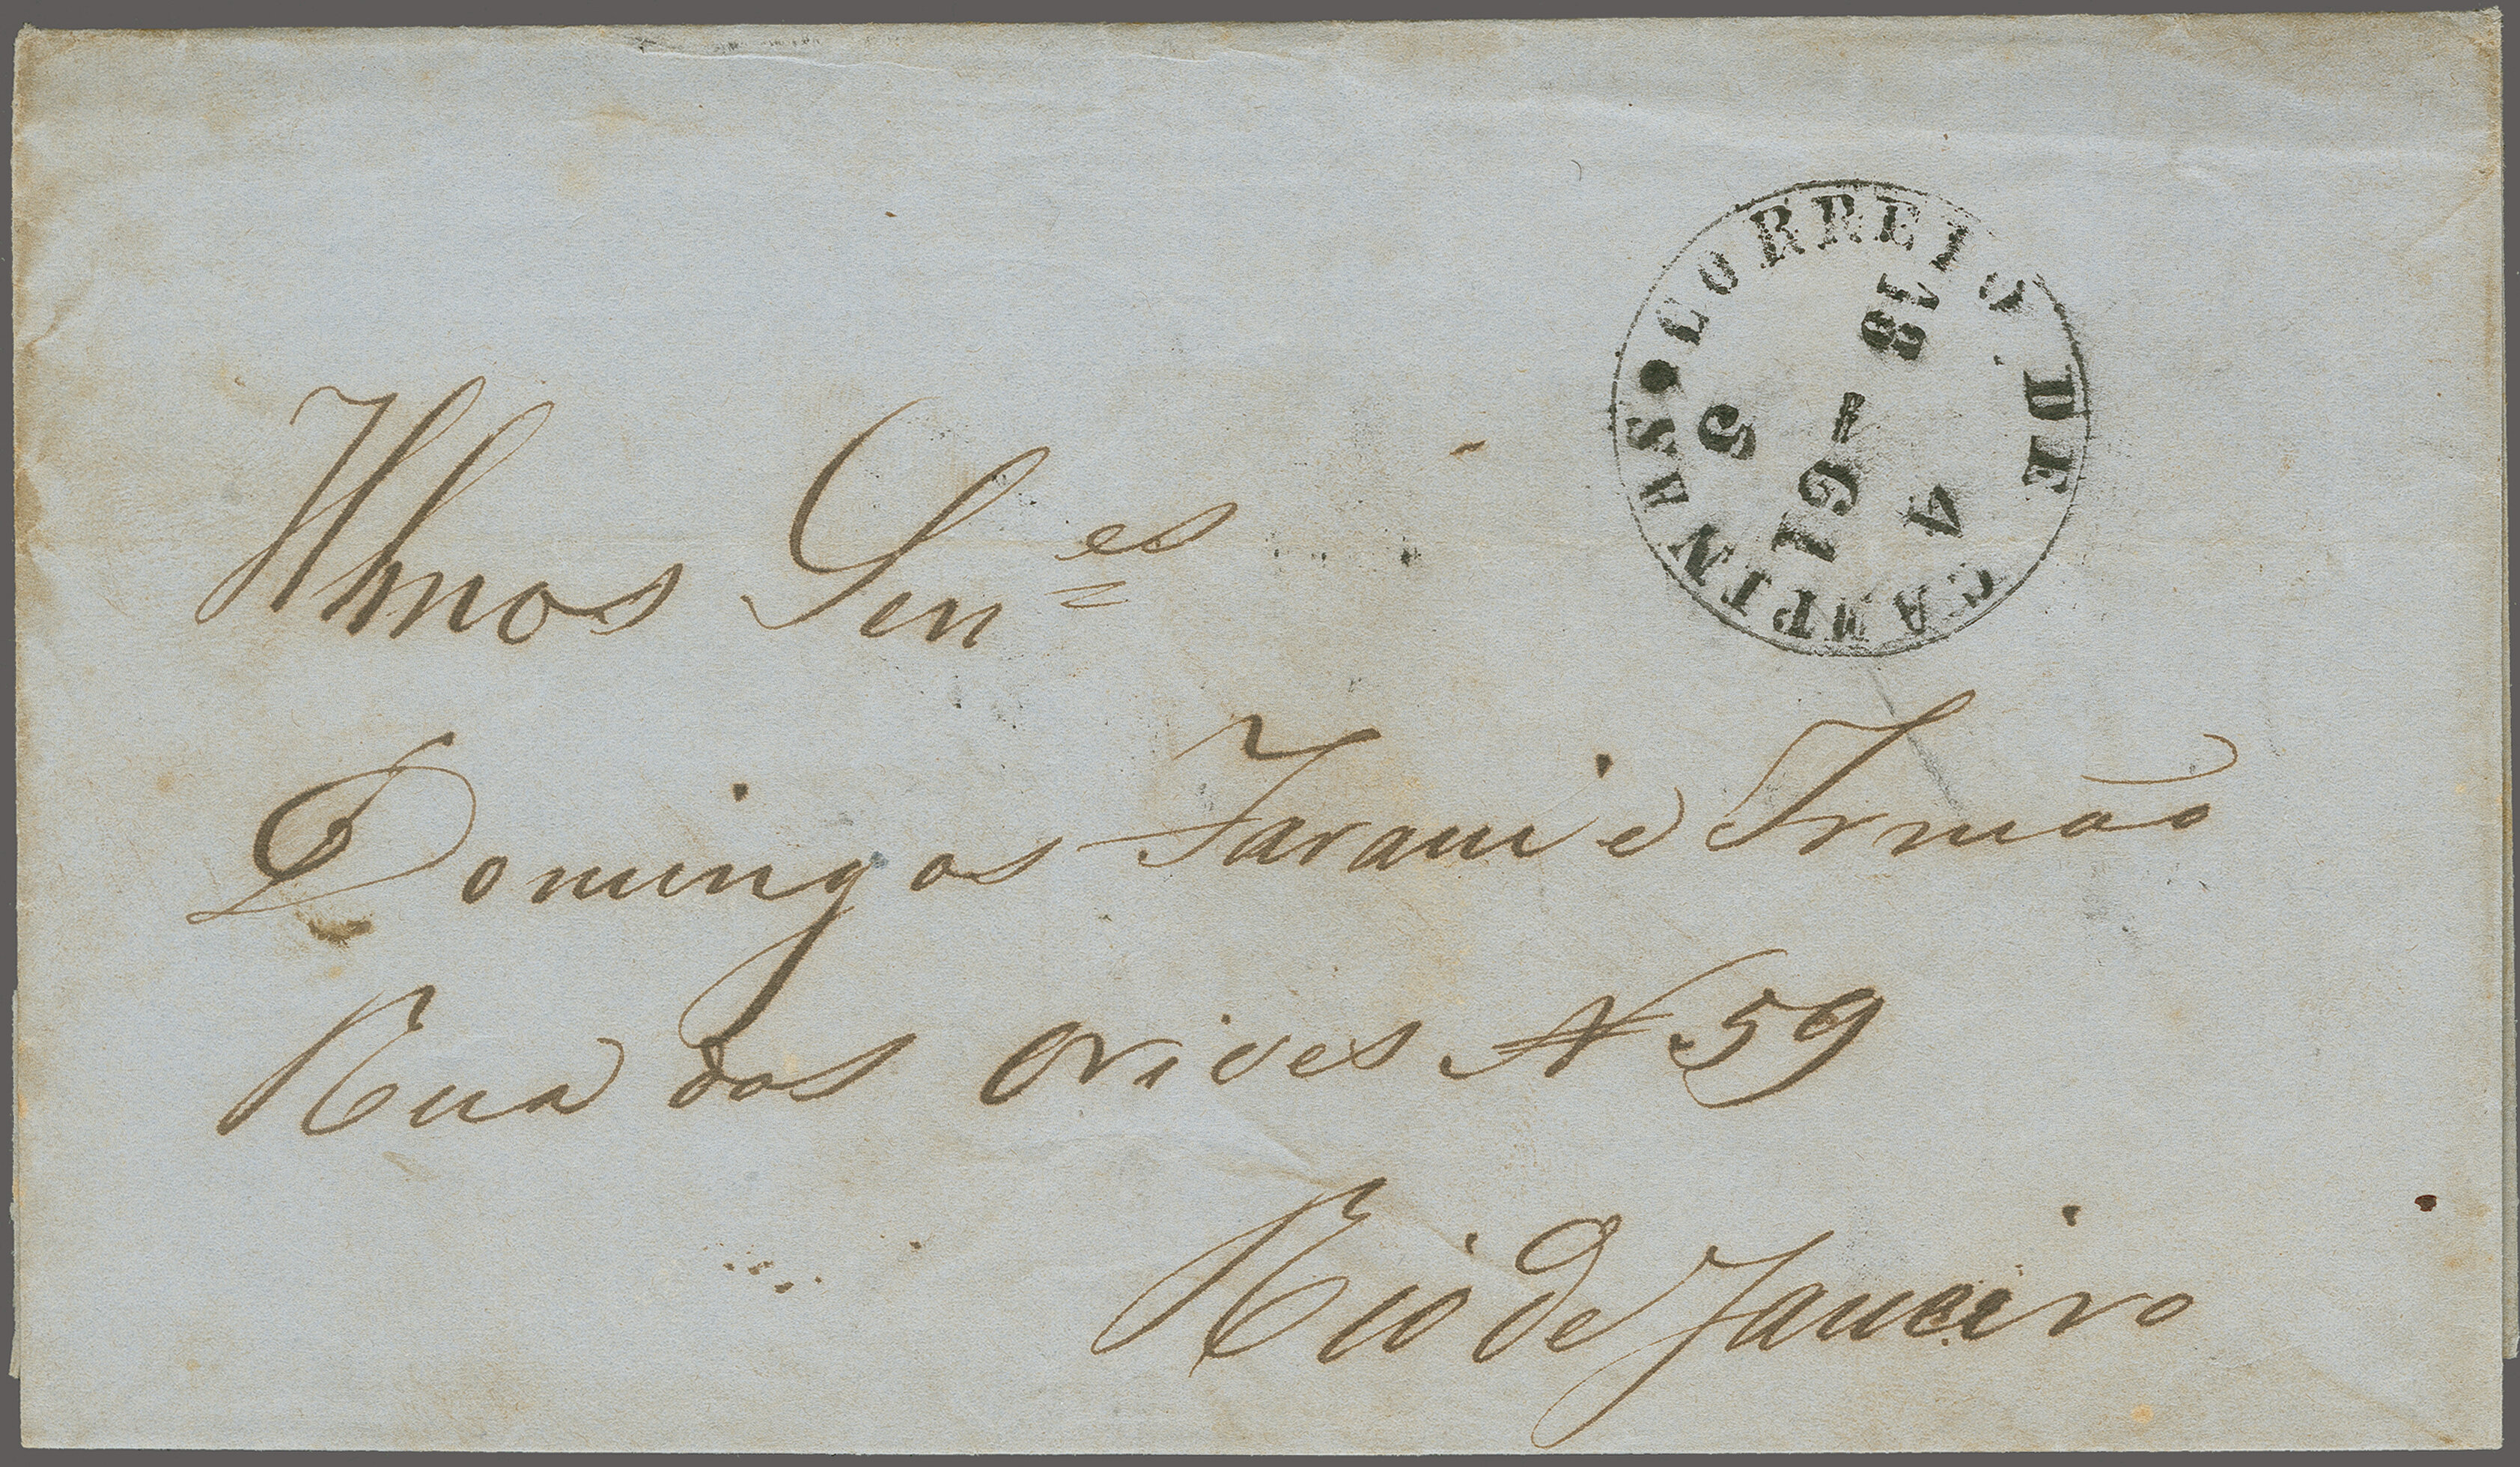 CORREIO DE CAMPINAS
4
18 - 61
5
Illmos Senes
Domingos Farani e Irmão
Rua dos Orives N 59
Rio de Janeiro